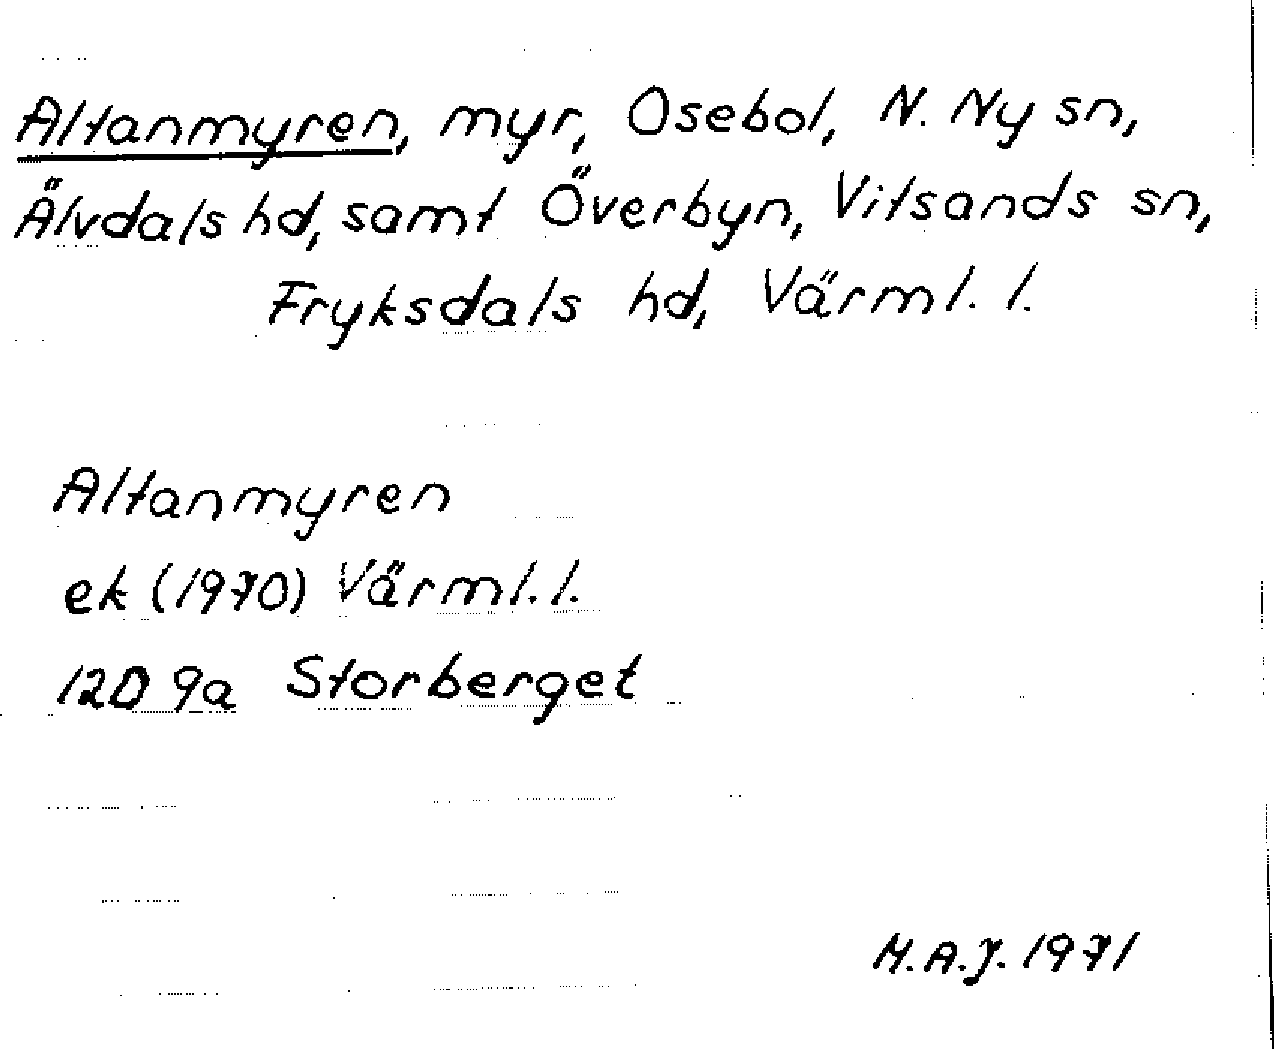 Altanmyren, myr, Osebol, N. Ny sn,
Älvdals hd, samt Överbyn, Vitsands sn,
Fryksdals hd, Värml. l.
Altanmyren
ek (1970) Värml. l.
12D 9a Storberget
M.A.J. 1971